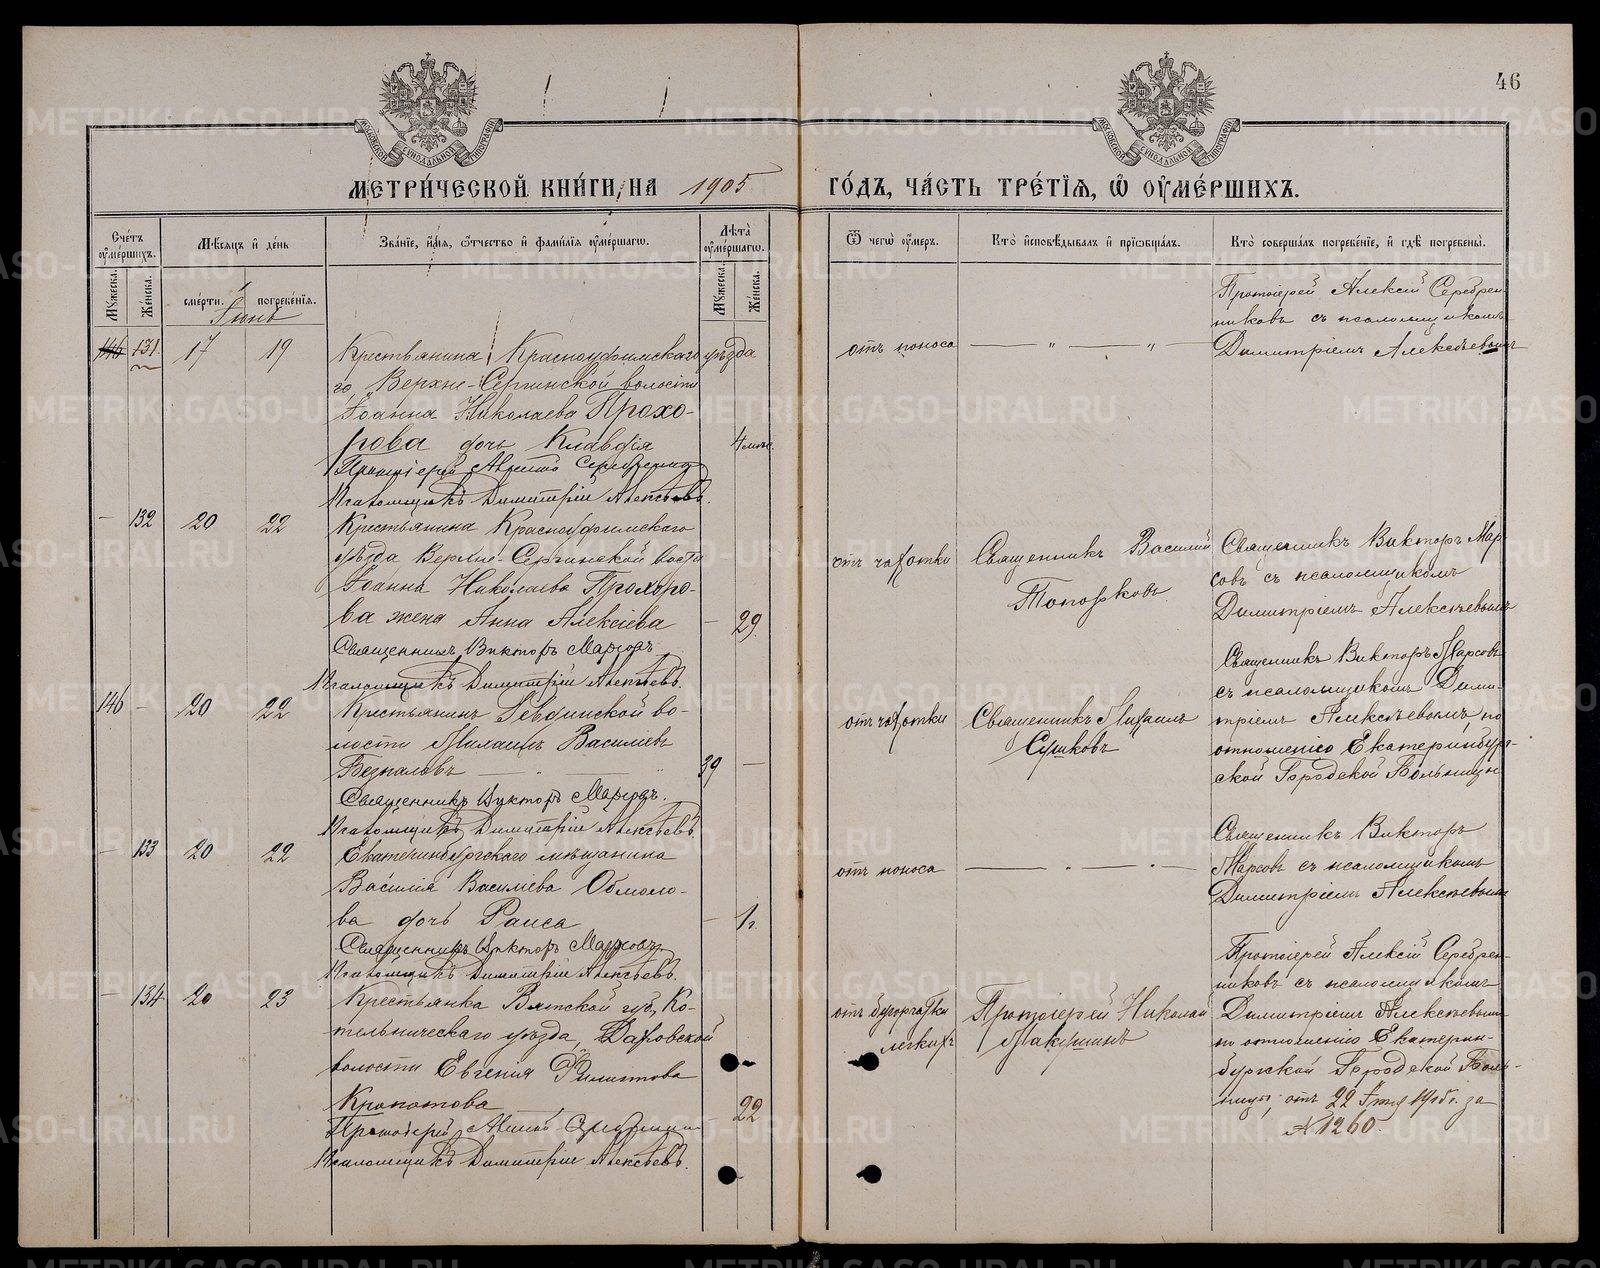 46
МЕТРИ́ЧЕСКОЙ КНИ́ГИ, НА 1905 ГО́ДЪ, ЧА́СТЬ ТРЕ́ТІѦ, Ѡ ОУМЕ́РШИХЪ.
Сче́тъ оуме́ршихъ.
Мꙋжеска.
Же́нска.
Мѣ́сѧцъ и де́нь
сме́рти.
погребе́нїѧ.
Іюнь
Зва́нїе, и́мѧ, ѻ́тчество и фами́лїѧ оуме́ршагѡ.
Лѣ́та оуме́ршагѡ.
Мꙋжеска.
Же́нска.
Ѿ чегѡ̀ оу́меръ.
Кто̀ и҆сповѣ́дывалъ и҆ прїѡбща́лъ.
Кто̀ соверша́лъ погребе́нїе, и҆ гдѣ̀ погребены̀.
146 131. 17 19
Крестьянина Красноуфимскаго уѣзда
го, Верхне-Сергинской волости
Іоанна Николаева Прохо-
рова дочь Клавдія
4 мѣс.
Протоіерей Алексій Серебренниковъ
Псаломщикъ Димитрій Алексѣевъ.
отъ поноса — " — " —
Протоіерей Алексій Серебрен-
никовъ съ псаломщикомъ
Димитріемъ Алексѣевымъ
– 132 20 22
Крестьянина Красноуфимскаго
уѣзда Верхне-Сергинской вости
Іоанна Николаева Прохоро-
ва жена Анна Алексіева
– 29.
Священникъ Викторъ Марсовъ
Псаломщикъ Димитрій Алексѣевъ.
отъ чахотки
Священникъ Василій
Топорковъ
Священникъ Викторъ Мар-
совъ съ псаломщикомъ
Димитріемъ Алексѣевымъ
146 – 20 22
Крестьянинъ Ревдинской во-
лости Михаилъ Василіевъ
Безпаловъ — " — "
39 –
Священникъ Викторъ Марсовъ.
Псаломщикъ Димитрій Алексѣевъ
отъ чахотки
Священникъ Михаилъ
Сушковъ
Священникъ Викторъ Марсовъ
съ псаломщикомъ Дими-
тріемъ Алексѣевымъ, по
отношенію Екатеринбург-
ской Городской Больницы
– 133 20 22
Екатеринбургскаго мѣщанина
Василія Василіева Обмоло-
ва дочь Раиса
– 1г.
Священникъ Викторъ Марсовъ
Псаломщикъ Димитрій Алексѣевъ.
отъ поноса — " — " —
Священникъ Викторъ
Марсовъ съ псаломщикомъ
Димитріемъ Алексѣевымъ
– 134 20 23
Крестьянка Вятской губ, Ко-
тельническаго уѣзда,
волости Евгенія Филиппова
Кропотова
22
Протоіерей Алексій Серебренниковъ
Псаломщикъ Димитрій Алексѣевъ.
отъ бугорчатки
легкихъ
Протоіерей Николай
Макушинъ
Протоіерей Алексій Серебрен-
никовъ съ псаломщикомъ
Димитріемъ Алексѣевымъ
по отношенію Екатерин-
бургской Городской Боль-
ницы, отъ 22 Іюня 1905г. за
№ 1260.
METRIKI.GASO-URAL.RU